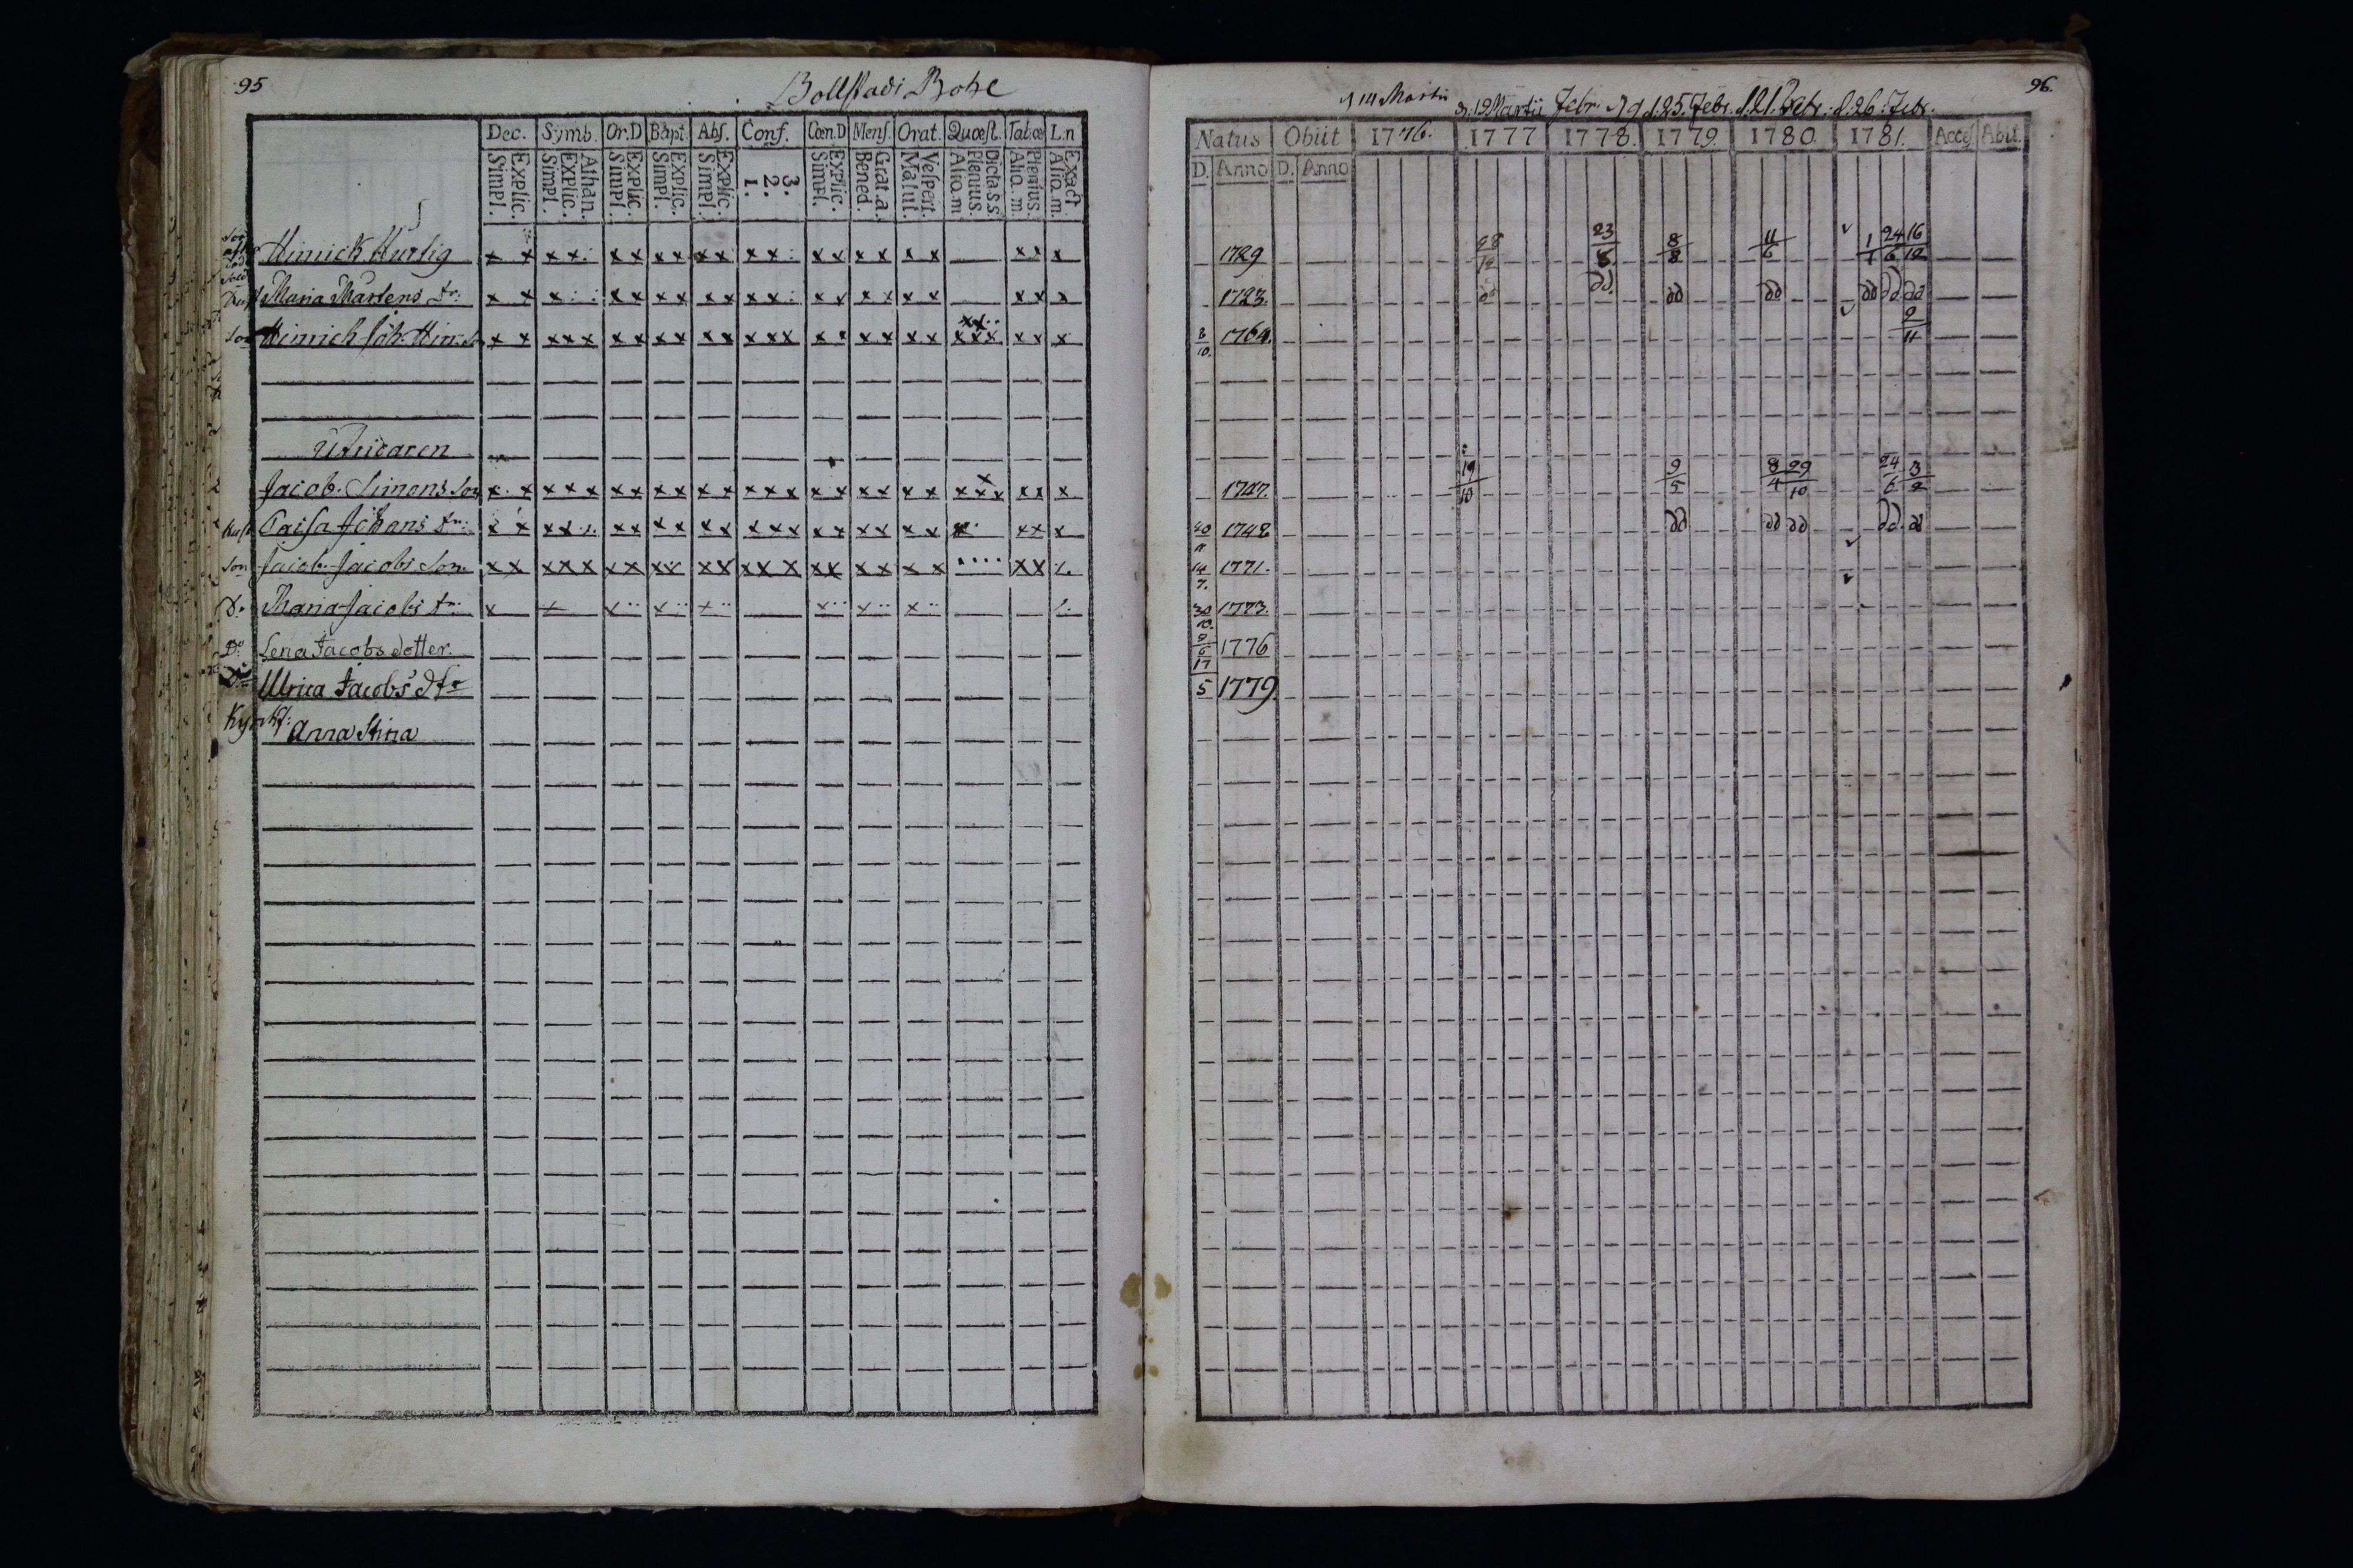 95
Bollstadi Bohl
Dec. Symb. Or.D Bapt. Abs. Conf. Cœn.D Mens. Orat. Quœst. Tab.œ L.n
Explic. Simpl. Athan. Explic. Simpl. Explic. Simpl. Explic. Simpl. Explic. Simpl. 3. 2. 1. Explic. Simpl. Grat.a. Bened. Vespert. Matut. Dicta s.s. Plenius. Aliq.m Plenius. Aliq.m. Exact Aliq.m.
Hinrick Hurtig x x x x x x x x x x x x x x x x x x x x x x
Maria Mårtens dr: x x x x x x x x x x x x x x x x x x x x
Son Hinrich Joh. Hin. x x x x x x x x x x x x x x x x x x x x x x x x x x x
Utridaren
Jacob Simons Son x x x x x x x x x x x x x x x x x x x x x x x x x x x
Hust Caisa Johans dr: x x x x x x x x x x x x x x x x x x x x x x x
Son Jacob Jacobs Son x x x x x x x x x x x x x x x x x x x x x x
Do Maria Jacobs dr: x x x x x x x x
Do Lena Jacobs dotter.
Do Ulrica Jacobs dtr
Anna Stina
96.
14 Martii d. 19 Martii Febr. d. 25. Febr. d. 21. Febr. d. 26. Febr.
Natus Obiit 1776. 1777 1778. 1779. 1780. 1781. Acces Abiit.
D. Anno D. Anno
1729 28/12 23/8 8/8 11/6 1/1 24/6 16/12
1723. dd dd. dd dd dd dd dd
8/10. 1764. 9/11
1727. 19/10 9/5 8/4 29/10 24/6 3/2
1748 dd dd dd dd. dd
14/7. 1771.
30/10. 1773.
9/6 1776
17/5 1779.